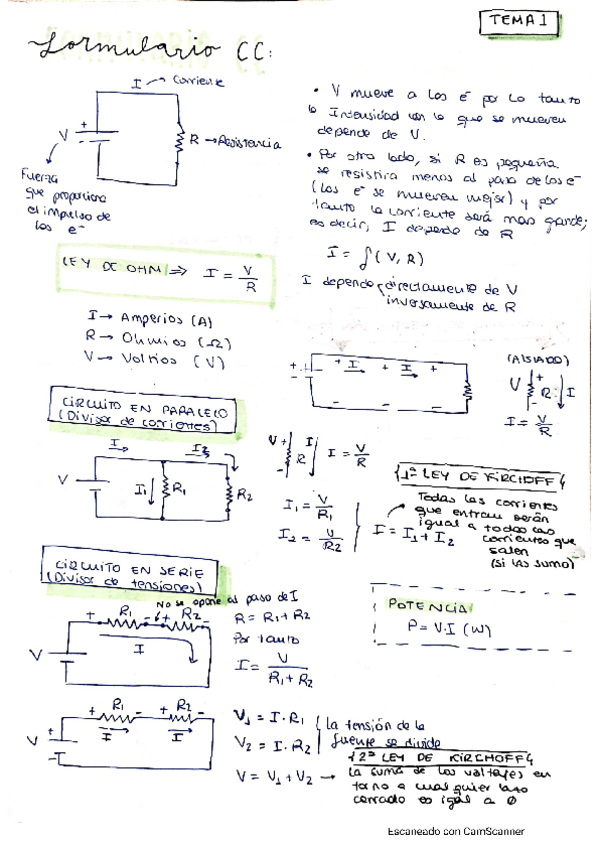 TEMA 1
Formulario CC:
I → Corriente
V
+
-
R → Resistencia
Fuerza
que proporciona
el impulso de
los e⁻
• V mueve a los e⁻ por lo tanto
la Intensidad con la que se mueven
depende de V.
• Por otro lado, si R es pequeña
se resistira menos al paso de los e⁻
(los e⁻ se mueven mejor) y por
tanto la corriente será mas grande;
es decir, I depende de R
I = f(V, R)
I depende directamente de V
inversamente de R
LEY DE OHM ⇒ I = V/R
I → Amperios (A)
R → Ohmios (Ω)
V → Voltios (V)
+ I + I +
- - -
(AISLADO)
V + R I
-
I = V/R
CIRCUITO EN PARALELO
(Divisor de corrientes)
I I2
V I1 R1 R2
V + R I
-
I = V/R
I1 = V/R1
I2 = V/R2
I = I1 + I2
1ª LEY DE KIRCHOFF
Todas las corrientes
que entran serán
igual a todas las
corrientes que
salen
(si las sumo)
CIRCUITO EN SERIE
(Divisor de tensiones)
No se opone al paso de I
+ R1 - + R2 -
V I
R = R1 + R2
Por tanto
I = V/(R1 + R2)
POTENCIA
P = V·I (W)
+ R1 - + R2 -
I I
V + -
V1 = I·R1
V2 = I·R2
la tensión de la
fuente se divide
2ª LEY DE KIRCHOFF
V = V1 + V2 → La suma de los voltajes en
torno a cualquier lazo
cerrado es igal a 0
Escaneado con CamScanner